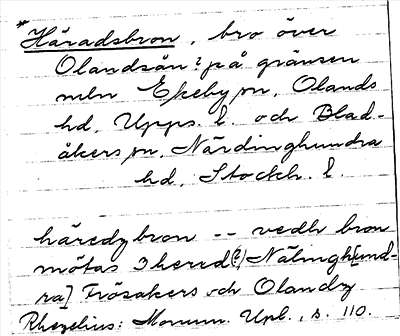 *Häradsbron, bro över
Olandsån? på gränsen
mln Ekeby sn, Olands
hd, Upps. l. och Blad-
åkers sn, Närdinghundra
hd, Stockh. l.
häredzbron -- vedh bron
mötas 3 herred(?) Nälingh[und-
ra] Frösakers och Olandz
Rhezelius: Monum. Upl., s. 110.